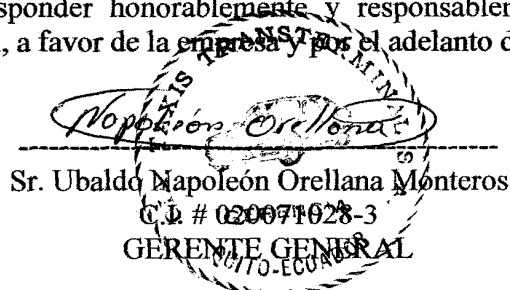 sponder honorablemente y responsablem
, a favor de la empresa y por el adelanto d
TAXIS TRANSTERMINAL
Napoleón Orellana
Sr. Ubaldo Napoleón Orellana Monteros
C.I. # 020071028-3
GERENTE GENERAL
QUITO-ECUADOR